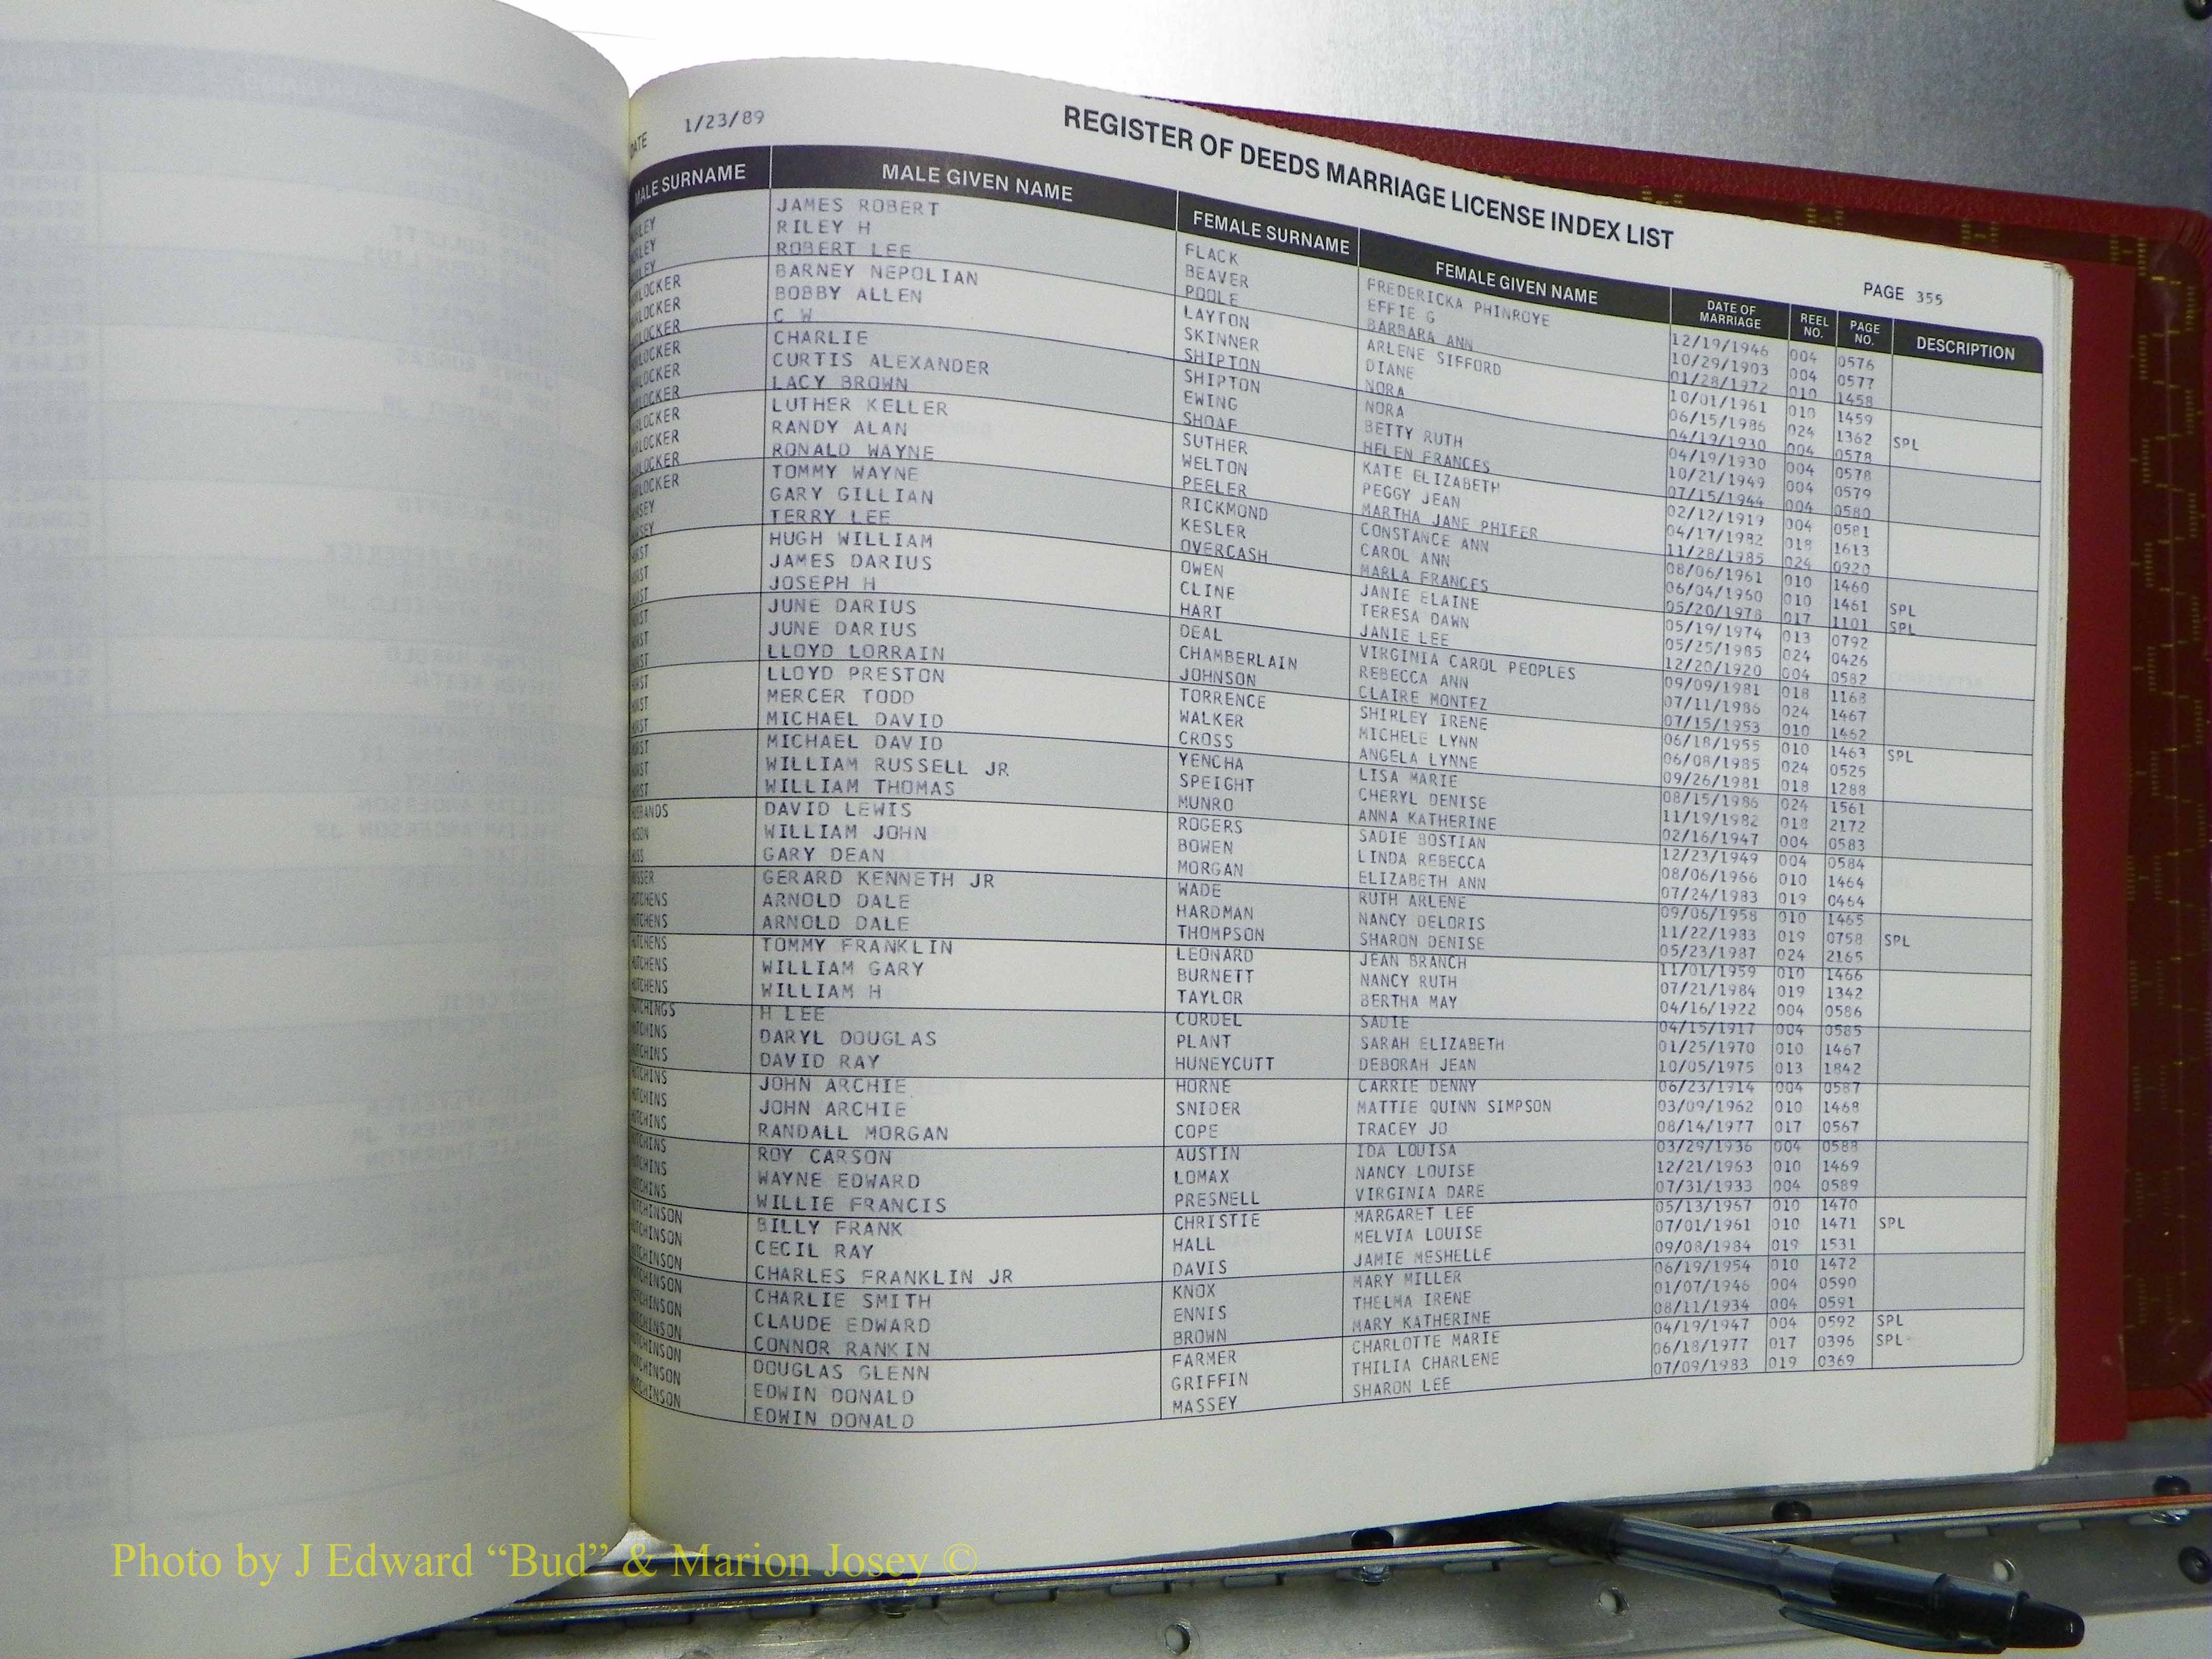 DATE 1/23/89
REGISTER OF DEEDS MARRIAGE LICENSE INDEX LIST
PAGE 355
MALE SURNAME MALE GIVEN NAME FEMALE SURNAME FEMALE GIVEN NAME DATE OF MARRIAGE REEL NO. PAGE NO. DESCRIPTION
JAMES ROBERT FLACK FREDERICKA PHINROYE 12/19/1946 004 0576
RILEY H BEAVER EFFIE G 10/29/1903 004 0577
ROBERT LEE POOLE BARBARA ANN 01/28/1972 010 1458
BARNEY NEPOLIAN LAYTON ARLENE SIFFORD 10/01/1961 010 1459
BOBBY ALLEN SKINNER DIANE 06/15/1986 024 1362 SPL
C W SHIPTON NORA 04/19/1930 004 0578
CHARLIE SHIPTON NORA 04/19/1930 004 0578
CURTIS ALEXANDER EWING BETTY RUTH 10/21/1949 004 0579
LACY BROWN SHOAF HELEN FRANCES 07/15/1944 004 0580
LUTHER KELLER SUTHER KATE ELIZABETH 02/12/1919 004 0581
RANDY ALAN WELTON PEGGY JEAN 04/17/1982 018 1613
RONALD WAYNE PEELER MARTHA JANE PHIFER 11/28/1985 024 0920
TOMMY WAYNE RICKMOND CONSTANCE ANN 08/06/1961 010 1460
GARY GILLIAN KESLER CAROL ANN 06/04/1960 010 1461 SPL
TERRY LEE OVERCASH MARLA FRANCES 05/20/1978 017 1101 SPL
HUGH WILLIAM OWEN JANIE ELAINE 05/19/1974 013 0792
JAMES DARIUS CLINE TERESA DAWN 05/25/1985 024 0426
JOSEPH H HART JANIE LEE 12/20/1920 004 0582
JUNE DARIUS DEAL VIRGINIA CAROL PEOPLES 09/09/1981 018 1168
JUNE DARIUS CHAMBERLAIN REBECCA ANN 07/11/1986 024 1467
LLOYD LORRAIN JOHNSON CLAIRE MONTEZ 07/15/1953 010 1462
LLOYD PRESTON TORRENCE SHIRLEY IRENE 06/18/1955 010 1463 SPL
MERCER TODD WALKER MICHELE LYNN 06/08/1985 024 0525
MICHAEL DAVID CROSS ANGELA LYNNE 09/26/1981 018 1288
MICHAEL DAVID YENCHA LISA MARIE 08/15/1986 024 1561
WILLIAM RUSSELL JR SPEIGHT CHERYL DENISE 11/19/1982 018 2172
WILLIAM THOMAS MUNRO ANNA KATHERINE 02/16/1947 004 0583
DAVID LEWIS ROGERS SADIE BOSTIAN 12/23/1949 004 0584
WILLIAM JOHN BOWEN LINDA REBECCA 08/06/1966 010 1464
GARY DEAN MORGAN ELIZABETH ANN 07/24/1983 019 0464
GERARD KENNETH JR WADE RUTH ARLENE 09/06/1958 010 1465
HUTCHENS ARNOLD DALE HARDMAN NANCY DELORIS 11/22/1983 019 0758 SPL
HUTCHENS ARNOLD DALE THOMPSON SHARON DENISE 05/23/1987 024 2165
HUTCHENS TOMMY FRANKLIN LEONARD JEAN BRANCH 11/01/1959 010 1466
HUTCHENS WILLIAM GARY BURNETT NANCY RUTH 07/21/1984 019 1342
HUTCHENS WILLIAM H TAYLOR BERTHA MAY 04/16/1922 004 0586
HUTCHINGS H LEE CORDEL SADIE 04/15/1917 004 0585
HUTCHINS DARYL DOUGLAS PLANT SARAH ELIZABETH 01/25/1970 010 1467
HUTCHINS DAVID RAY HUNEYCUTT DEBORAH JEAN 10/05/1975 013 1842
HUTCHINS JOHN ARCHIE HORNE CARRIE DENNY 06/23/1914 004 0587
HUTCHINS JOHN ARCHIE SNIDER MATTIE QUINN SIMPSON 03/09/1962 010 1468
HUTCHINS RANDALL MORGAN COPE TRACEY JO 08/14/1977 017 0567
HUTCHINS ROY CARSON AUSTIN IDA LOUISA 03/29/1936 004 0588
HUTCHINS WAYNE EDWARD LOMAX NANCY LOUISE 12/21/1963 010 1469
HUTCHINS WILLIE FRANCIS PRESNELL VIRGINIA DARE 07/31/1933 004 0589
HUTCHINSON BILLY FRANK CHRISTIE MARGARET LEE 05/13/1967 010 1470
HUTCHINSON CECIL RAY HALL MELVIA LOUISE 07/01/1961 010 1471 SPL
HUTCHINSON CHARLES FRANKLIN JR DAVIS JAMIE MESHELLE 09/08/1984 019 1531
HUTCHINSON CHARLIE SMITH KNOX MARY MILLER 06/19/1954 010 1472
HUTCHINSON CLAUDE EDWARD ENNIS THELMA IRENE 01/07/1946 004 0590
HUTCHINSON CONNOR RANKIN BROWN MARY KATHERINE 08/11/1934 004 0591
HUTCHINSON DOUGLAS GLENN FARMER CHARLOTTE MARIE 04/19/1947 004 0592 SPL
HUTCHINSON EDWIN DONALD GRIFFIN THILIA CHARLENE 06/18/1977 017 0396 SPL
HUTCHINSON EDWIN DONALD MASSEY SHARON LEE 07/09/1983 019 0369
Photo by J Edward “Bud” & Marion Josey ©